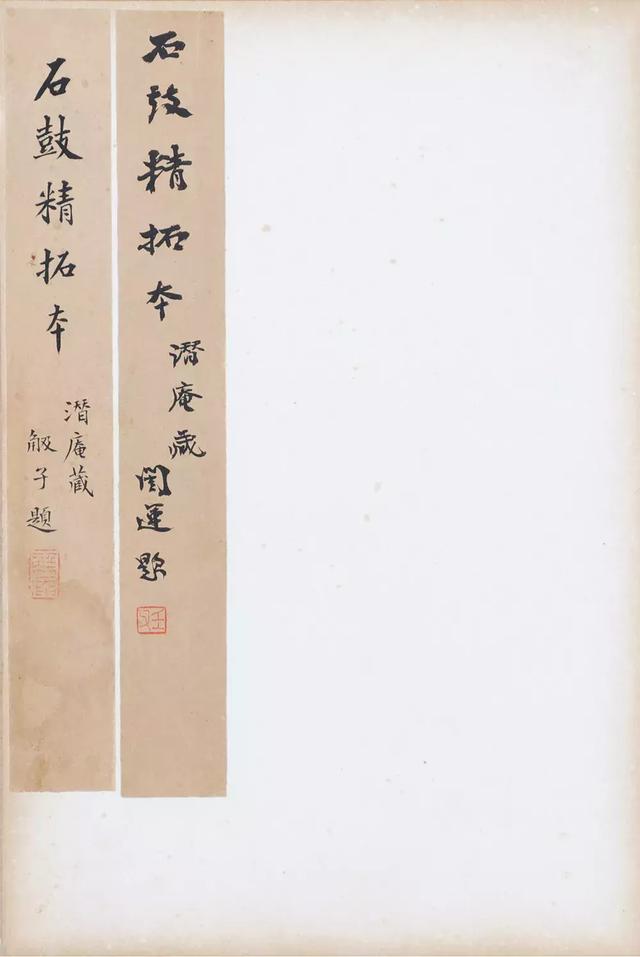 石鼓精拓本
潛庵藏
闓運題
石鼓精拓本
潛庵藏
子題